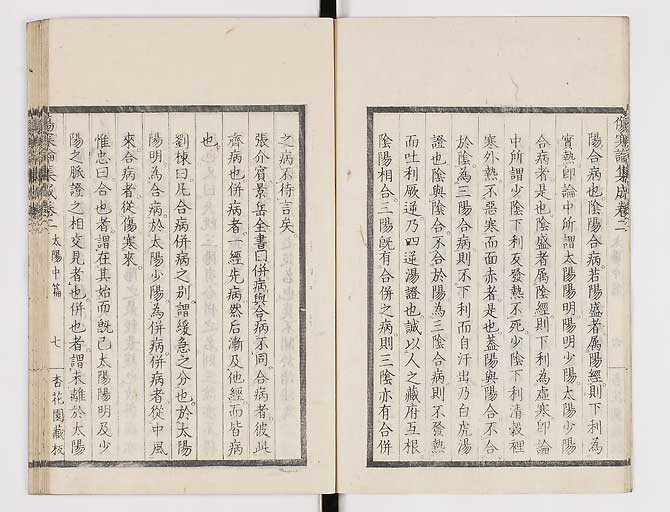 傷寒論集成卷二
陽合病也。陰陽合病。若陽盛者屬陽經。則下利為
實熱。即論中所謂太陽陽明陽明少陽太陽少陽
合病者是也。陰盛者屬陰經則下利為虛寒。即論
中所謂少陰下利反發熱不死少陰下利清穀裡
寒外熱不惡寒而面赤者是也。蓋陽與陽合不合
於陰為三陽合病則不下利而自汗出乃白虎湯
證也陰與陰合不合於陽為三陰合病則不發熱
而吐利厥逆乃四逆湯證也誠以人之藏府互根
陰陽相合三陽既有合併之病則三陰亦有合併
之病不待言矣
張介賓景岳全書曰併病與合病不同合病者彼此
齊病也併病者一經先病然后漸及他經而皆病
也
劉棟曰凡合病併病之別謂緩急之分也於太陽
陽明為合病於太陽少陽為併病併病者從中風
來合病者從傷寒來
惟忠曰合也者謂在其始而既已太陽陽明及少
陽之脈證之相交見者也併也者謂未離於太陽
傷寒論集成卷二 太陽中篇 七 杏花園藏板